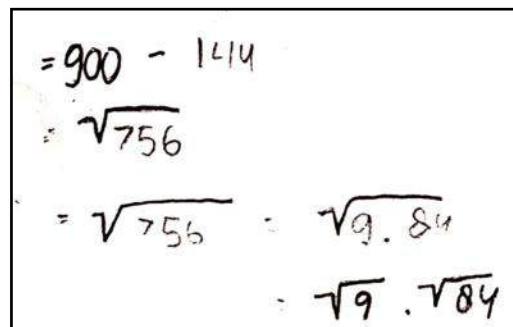 = 900 - 144
= √756
= √756 = √9.84
= √9 . √84